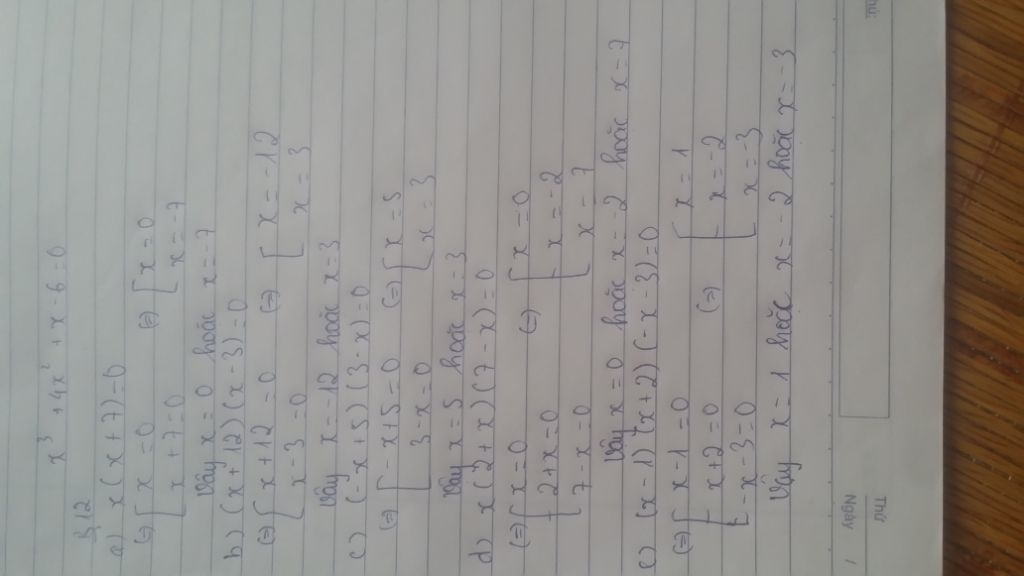 x³ + 4x² + x - 6 = 0
B12
a) x(x+7)=0
(=) [x = 0 (=) [x = 0
x + 7 = 0 x = -7
Vậy x = 0 hoặc x = -7
b) (x+12)(x-3)=0
(=) [x + 12 = 0 (=) [x = -12
x - 3 = 0 x = 3
Vậy x = -12 hoặc x = 3
c) (-x+5)(3-x)=0
(=) [-x + 5 = 0 (=) [x = 5
3 - x = 0 x = 3
Vậy x = 5 hoặc x = 3
d) x(2+x)(7-x)=0
(=) [x = 0 (=) [x = 0
2 + x = 0 x = -2
7 - x = 0 x = 7
Vậy x = 0 hoặc x = -2 hoặc x = 7
e) (x-1)(x+2)(-x-3)=0
(=) [x - 1 = 0 (=) [x = 1
x + 2 = 0 x = -2
-x - 3 = 0 x = -3
Vậy x = 1 hoặc x = -2 hoặc x = -3
Thứ
Ngày /